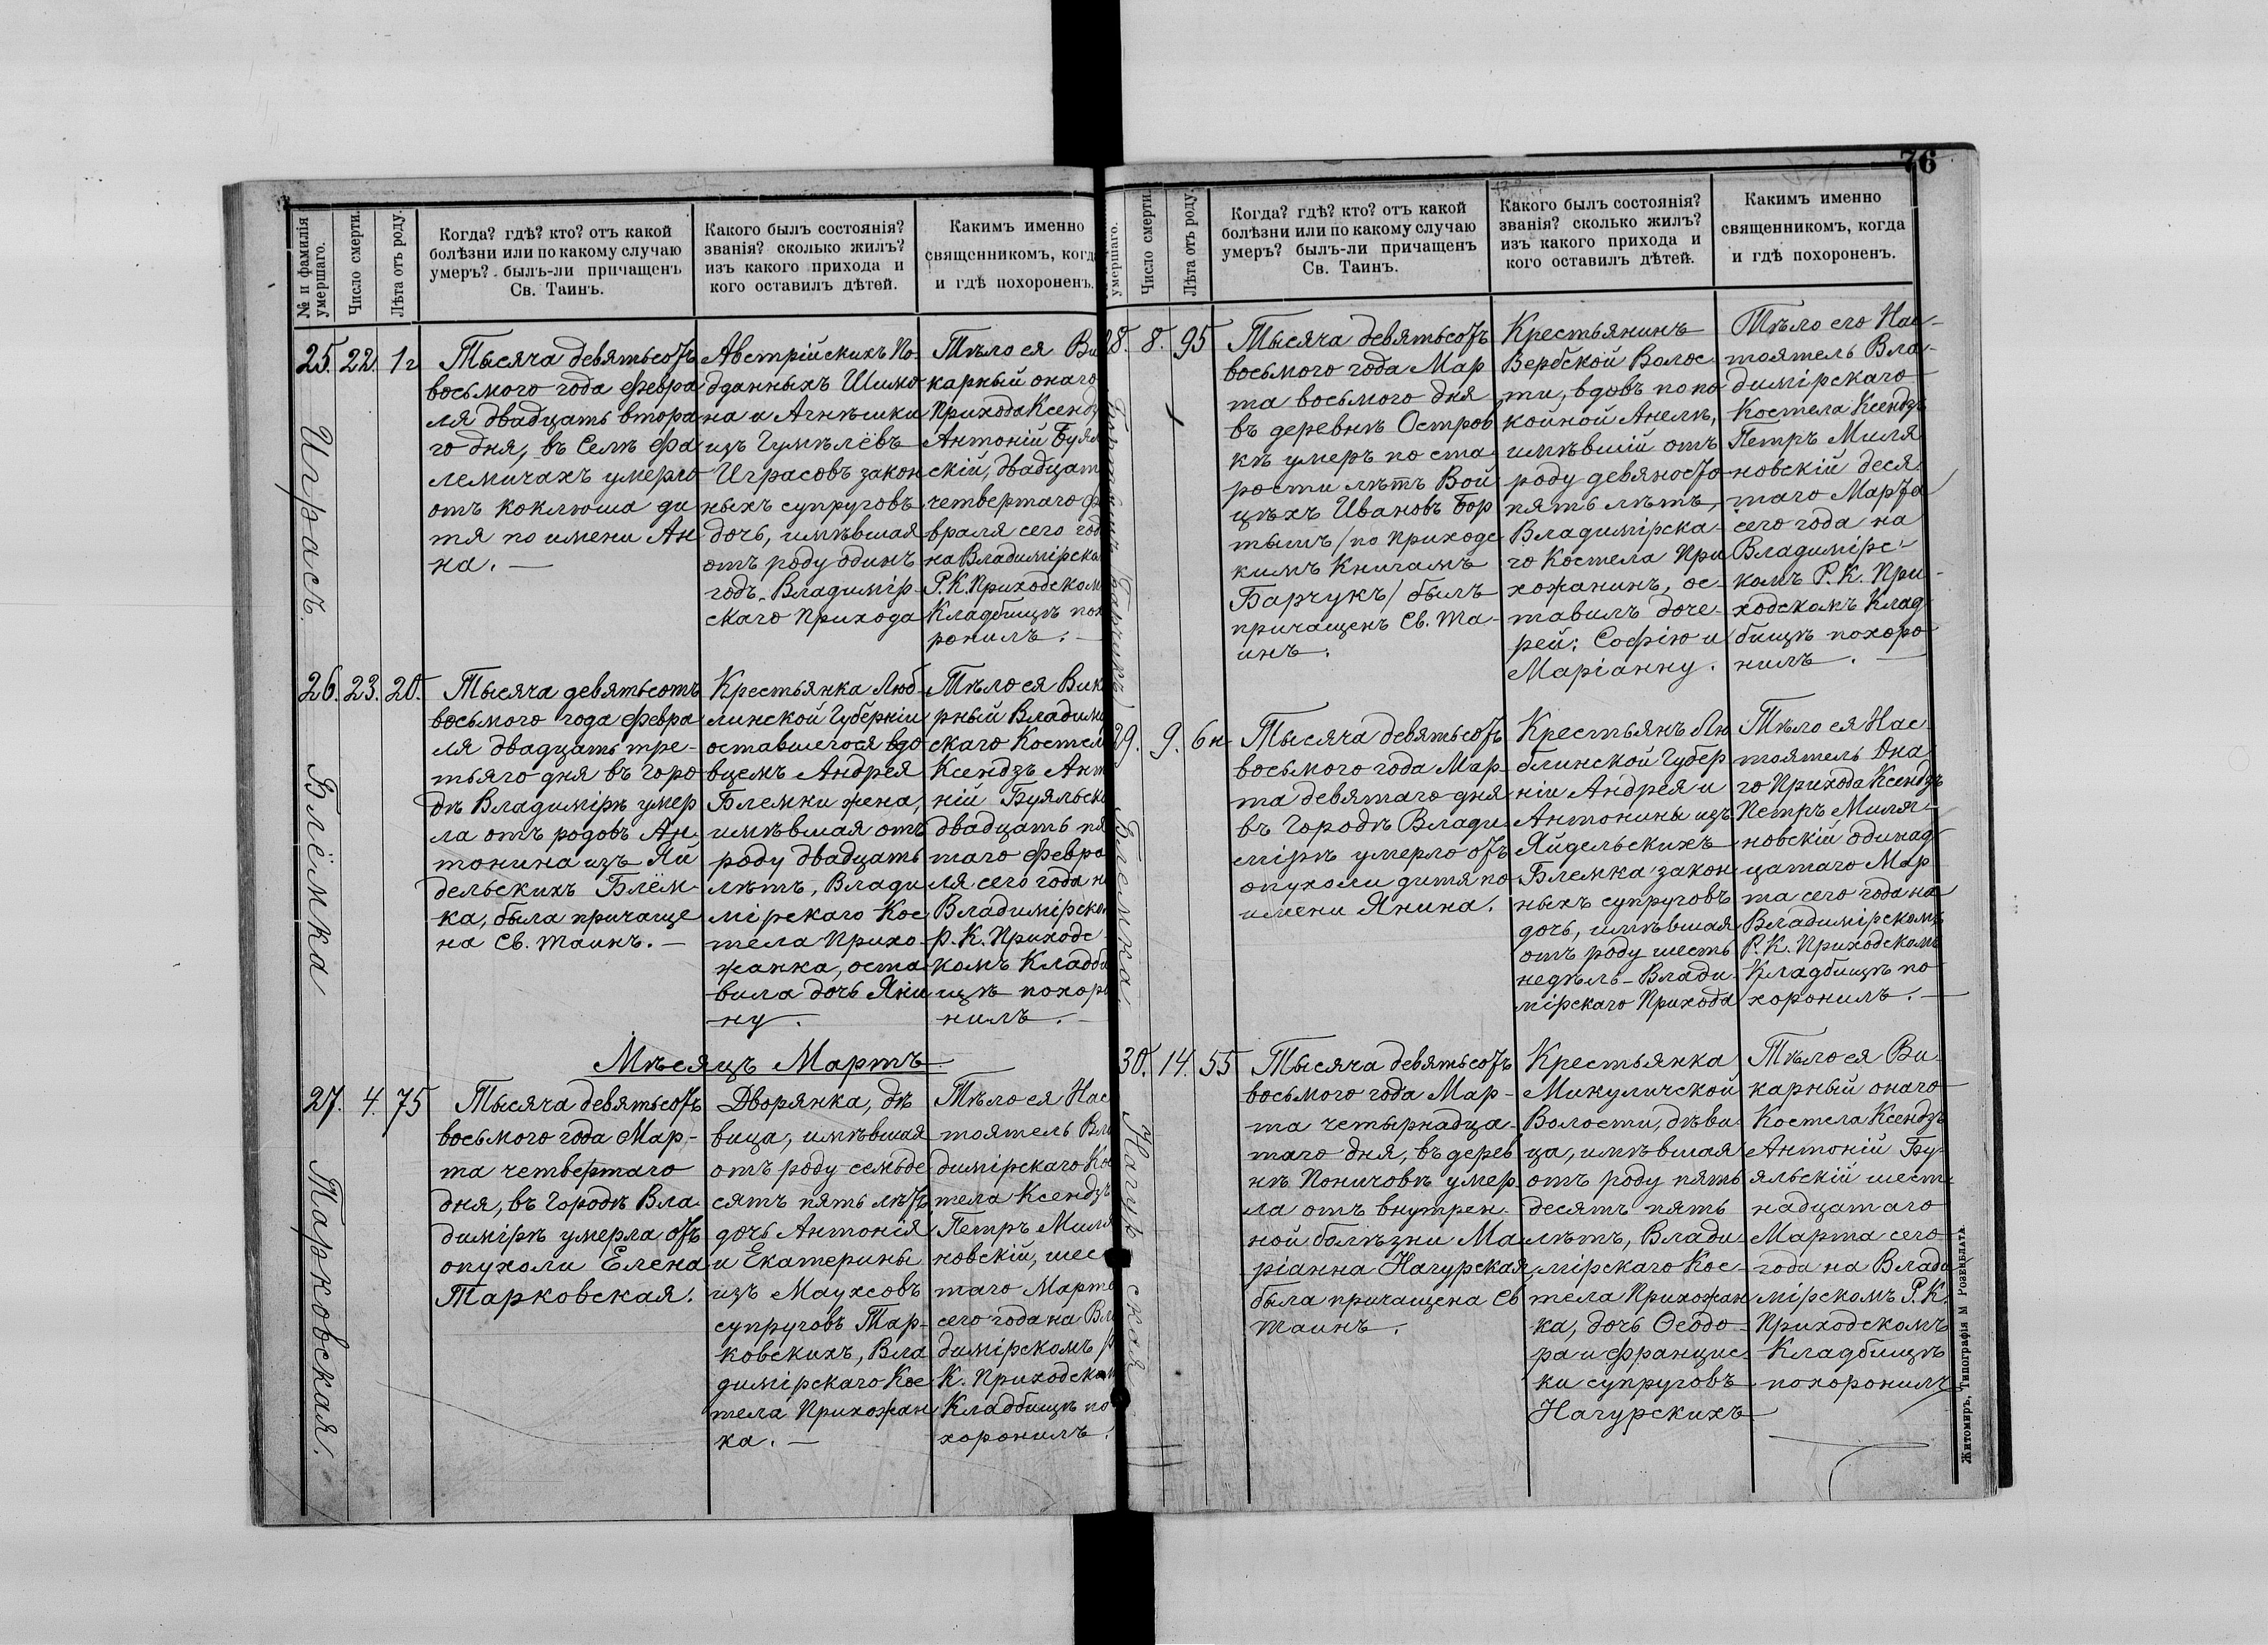 76
№ и фамилія
умершаго.
Число смерти.
Лѣта отъ роду.
Когда? гдѣ? кто? отъ какой
болѣзни или по какому случаю
умеръ? былъ-ли причащенъ
Св. Таинъ.
Какого былъ состоянія?
званія? сколько жилъ?
изъ какого прихода и
кого оставилъ дѣтей.
Какимъ именно
священникомъ, когд
и гдѣ похороненъ.
25. 22. 1 г
Играсъ.
Тысяча девятьсотъ
восьмого года Февра
ля двадцать второ
го дня, въ Селѣ Фа
лемичахъ умерло
отъ коклюша ди
тя по имени Ан
на. —
Австрійскихъ По-
дданныхъ Шимо
на и Агнѣшки
изъ Гумѣлёвъ
Играсовъ закон
ныхъ супруговъ
дочь, имѣвшая
отъ роду одинъ
годъ. Владимір-
скаго Прихода
Тѣло ея Ви
карный онаго
Прихода Ксендз
Антоній Буял
скій, двадцат
четвертаго Ф
враля сего год
на Владимірско
Р. К. Приходском
Кладбищѣ пох
ронилъ. —
26. 23. 20.
Блёмка
Тысяча девятьсотъ
восьмого года Февра
ля двадцать тре-
тьяго дня въ Горо
дѣ Владимірѣ умер
ла отъ родовъ Ан-
тонина изъ Яй
дельскихъ Блём-
ка, была причаще
на Св. Таинъ. —
Крестьянка Люб-
линской Губерніи
оставшегося вдо
вцемъ Андрея
Блемки жена,
имѣвшая отъ
роду двадцать
лѣтъ, Влади
мірскаго Кос
тела Прихо-
жанка, оста
вила дочь Яни
ну.
Тѣло ея Вик
рный Владими
скаго Костел
Ксендзъ Ант
ній Буяльск
двадцать пя
таго Февра
ля сего года н
Владимірско
Р. К. Приходс
комъ Кладби
щѣ похоро
нилъ. —
Мѣсяцъ Мартъ
27. 4. 75
Тарковская.
Тысяча девятьсотъ
восьмого года Мар-
та четвертаго
дня, въ Городѣ Вла
димірѣ умерла отъ
опухоли Елена
Тарковская.
Дворянка, дѣ
вица, имѣвшая
отъ роду семьде
сятъ пять лѣтъ,
дочь Антонія
и Екатерины
изъ Маухсовъ
супруговъ Тар-
ковскихъ, Вла
димірскаго Кос
тела Прихожан
ка. —
Тѣло ея Нас
тоятель Вла
димірскаго Кос
тела Ксендзъ
Петръ Миля
новскій, шес
таго Марта
сего года на Вла
димірскомъ Р
К. Приходском
Кладбищѣ по
хоронилъ.
умершаго.
Число смерти.
Лѣта отъ роду.
Когда? гдѣ? кто? отъ какой
болѣзни или по какому случаю
умеръ? былъ-ли причащенъ
Св. Таинъ.
Какого былъ состоянія?
званія? сколько жилъ?
изъ какого прихода и
кого оставилъ дѣтей.
Какимъ именно
священникомъ, когда
и гдѣ похороненъ.
28. 8. 95
Тысяча девятьсотъ
восьмого года Мар
та восьмого дня
въ деревнѣ Остров
кѣ умеръ по ста
рости лѣтъ Вой
цѣхъ Ивановъ Бор
тымъ / по Приходс
кимъ Книгамъ
Барчукъ / былъ
причащенъ Св. Та-
инъ.
Крестьянинъ
Вербской Волос
ти, вдовъ по по
койной Анелѣ,
имѣвшій отъ
роду девяносто
пять лѣтъ,
Владимірска-
го Костела При
хожанинъ, ос-
тавилъ доче-
рей: Софію и
Маріанну.
Тѣло его Нас-
тоятель Вла-
димірскаго
Костела Ксендзъ
Петръ Миля
новскій деся
таго Марта
сего года на
Владимірс-
комъ Р. К. При-
ходскомъ Клад
бищѣ похоро
нилъ. —
29. 9. 6 н.
Блемка.
Тысяча девятьсотъ
восьмого года Мар-
та девятаго дня
въ Городѣ Влади-
мірѣ умерло отъ
опухоли дитя по
имени Янина.
Крестьянъ Лю
блинской Губер
ніи Андрея и
Антонины изъ
Яйдельскихъ
Блемка закон
ныхъ супруговъ
дочь, имѣвшая
отъ роду шесть
недѣль – Влади-
мірскаго Прихода
Тѣло ея Нас
тоятель Она
го Прихода Ксендзъ
Петръ Миля-
новскій одинад
цатаго Мар
та сего года на
Владимірскомъ
Р. К. Приходскомъ
Кладбищѣ по
хоронилъ. —
30. 14. 55
Нагурская
Тысяча девятьсотъ
восьмого года Мар-
та четырнадца-
таго дня, въ дерев
нѣ Поничовѣ умер
ла отъ внутрен-
ной болѣзни Ма
ріанна Нагурская,
была причащена Св
Таинъ.
Крестьянка
Микуличской
Волости, дѣви
ца, имѣвшая
отъ роду пять
десятъ пять
лѣтъ, Влади
мірскаго Кос-
тела Прихожан
ка, дочь Ѳеодо-
ра и Францис
ки супруговъ
Нагурскихъ
Тѣло ея Ви-
карный онаго
Костела Ксендзъ
Антоній Бу-
яльскій шест-
надцатаго
Марта сего
года на Влади
мірскомъ Р. К.
Приходскомъ
Кладбищѣ
похоронилъ
Житомиръ, Типографія М. Розенблата